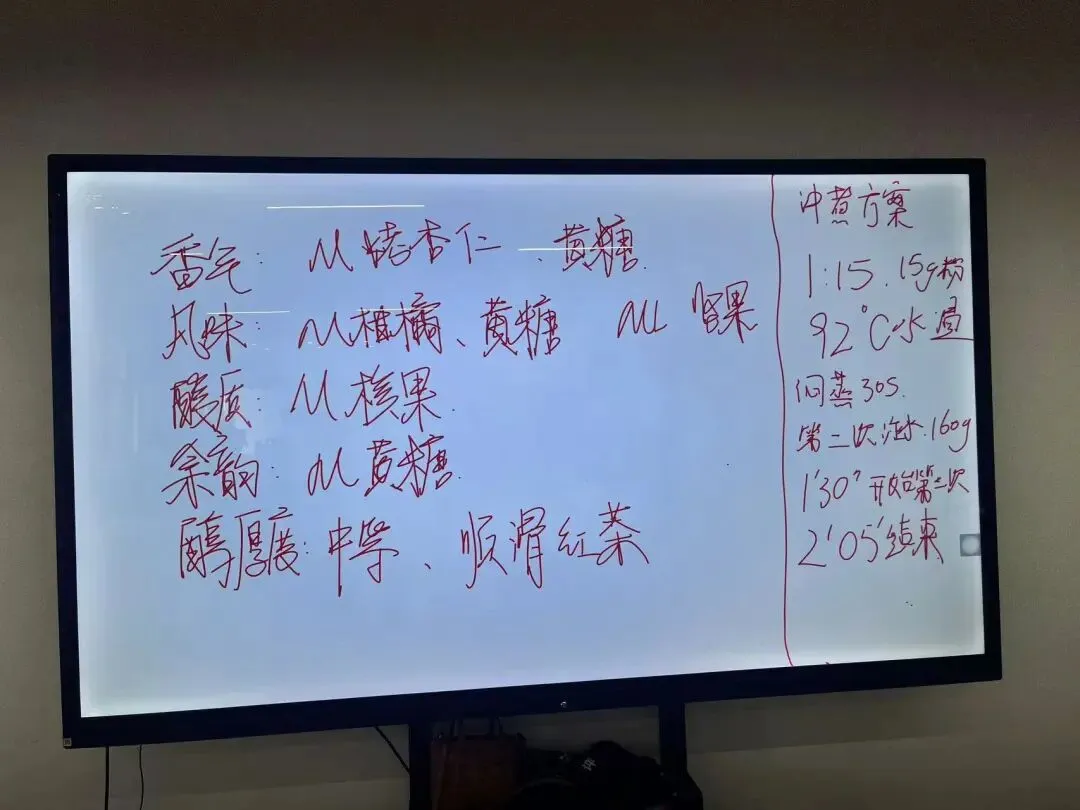 香气: M 烤杏仁、黄糖.
风味: M 柑橘、黄糖 ML 坚果
酸质: M 核果.
余韵: M 黄糖.
醇厚度: 中等、顺滑红茶
冲煮方案
1:15. 15g粉
92°C水温
闷蒸30S.
第二次注水.160g
1'30" 开始第三次
2'05"结束